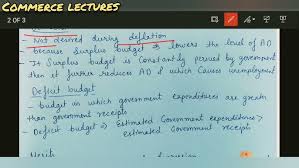 COMMERCE LECTURES
2 OF 3
Not desired during deflation
- because Surplus budget lowers the level of AD
- If Surplus budget is constantly persued by government
then it further reduces AD & which Causes unemployment
Deficit budget
- budget in which government expenditures are greater
than government receipts
- Deficit budget → Estimated Government expenditures >
estimated Government receipts